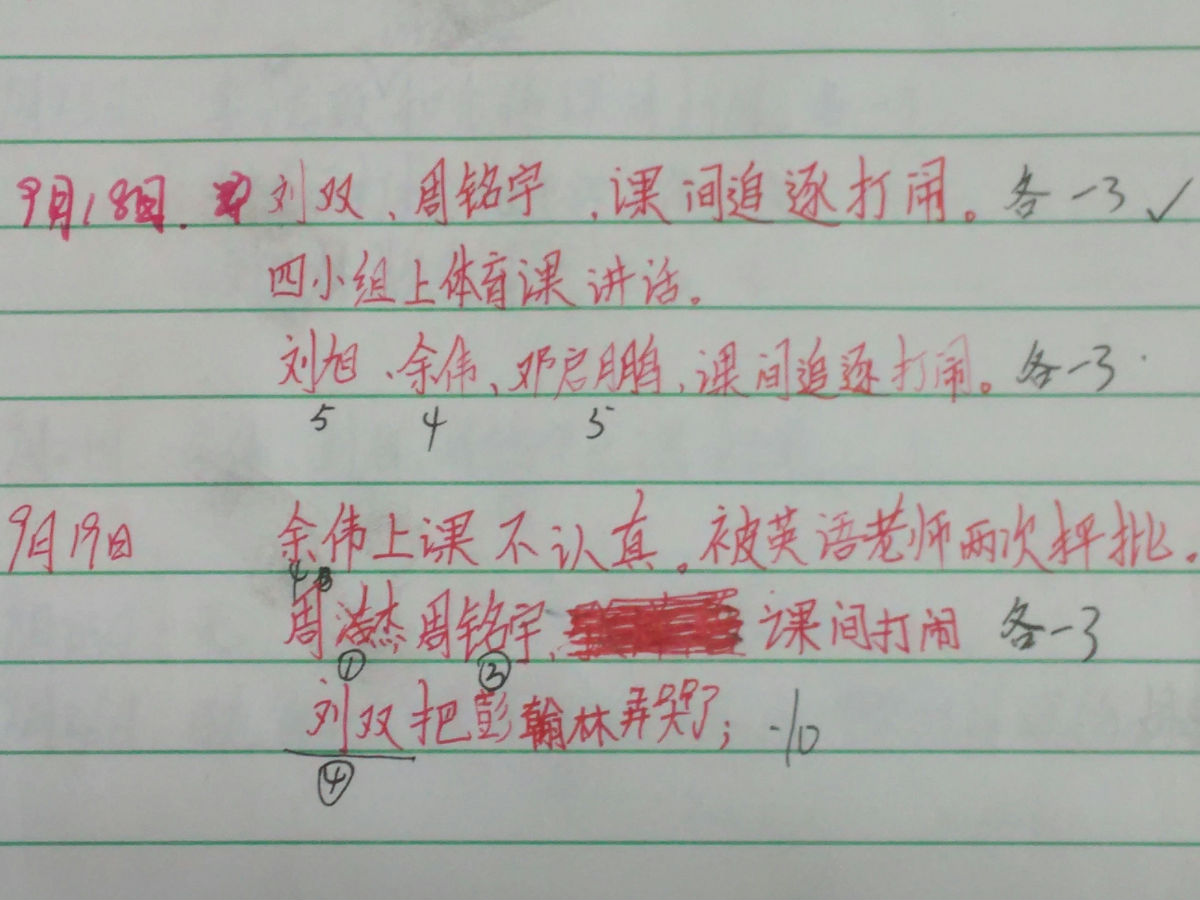 9月18日. 刘双、周铭宇,课间追逐打闹。各-3 ✓
四小组上体育课讲话。
刘旭、余伟、邓启鹏,课间追逐打闹。各-3
5 4 5
9月19日 余伟上课不认真。被英语老师两次抨批。
4
周浩杰周铭宇, 课间打闹 各-3
① ③
刘双把彭翰林弄哭了; -10
④